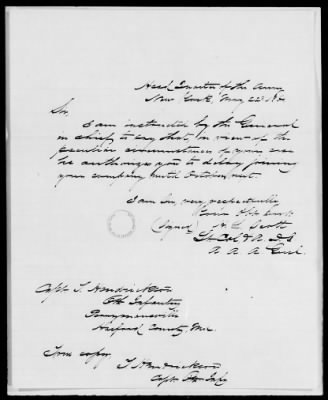 Head Quarters of the Army
New York, May 22d
Sir,
I am instructed by the General
in chief to say that, in view of the
peculiar circumstances of your case
he authorizes you to delay joining
your company until October next.
I am Sir, very respectfully
Your Obt Servt
(Signed) H. L. Scott
Lt Col & A. D. C.
A A A Genl.
Capt. T. Hendrickson
6th Infantry
Perrymansville
Harford County, Md.
True copy
T Hendrickson
Capt. 6th Infy